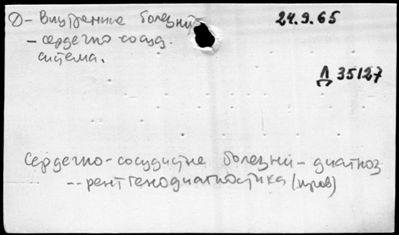 Д - Внутренние болезни
24.9.65
- сердечно-сосуд.
система.
Д 35127
Сердечно-сосудистые болезни - диагноз
-- рентгенодиагностика (пров)